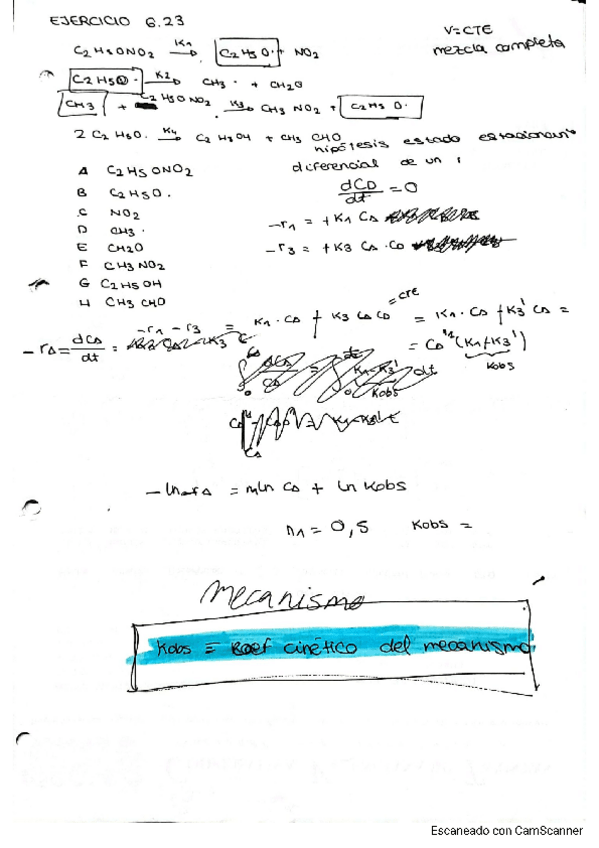 EJERCICIO 6.23
V=CTE
mezcla completa
C2H5ONO2 K1→ C2H5O· + NO2
C2H5O· K2→ CH3· + CH2O
CH3 + C2H5ONO2 K3→ CH3NO2 + C2H5O·
2 C2H5O· K4→ C2H5OH + CH3CHO
hipótesis estado estacionario
diferencial de un
A C2H5ONO2
B C2H5O·
C NO2
D CH3·
E CH2O
F CH3NO2
G C2H5OH
H CH3CHO
dCD/dt = 0
-r1 = +K1 CA
-r3 = +K3 CA·CD
-rA = dCA/dt = -r1 -r3 = K1·CA + K3 CA CD = cte = K1·CA + K3' CA =
= CA^n (K1+K3')
Kobs
-ln-rA = nln CA + ln Kobs
n1 = 0,5 Kobs =
Mecanismo
Kobs ≡ Coef cinético del mecanismo
Escaneado con CamScanner